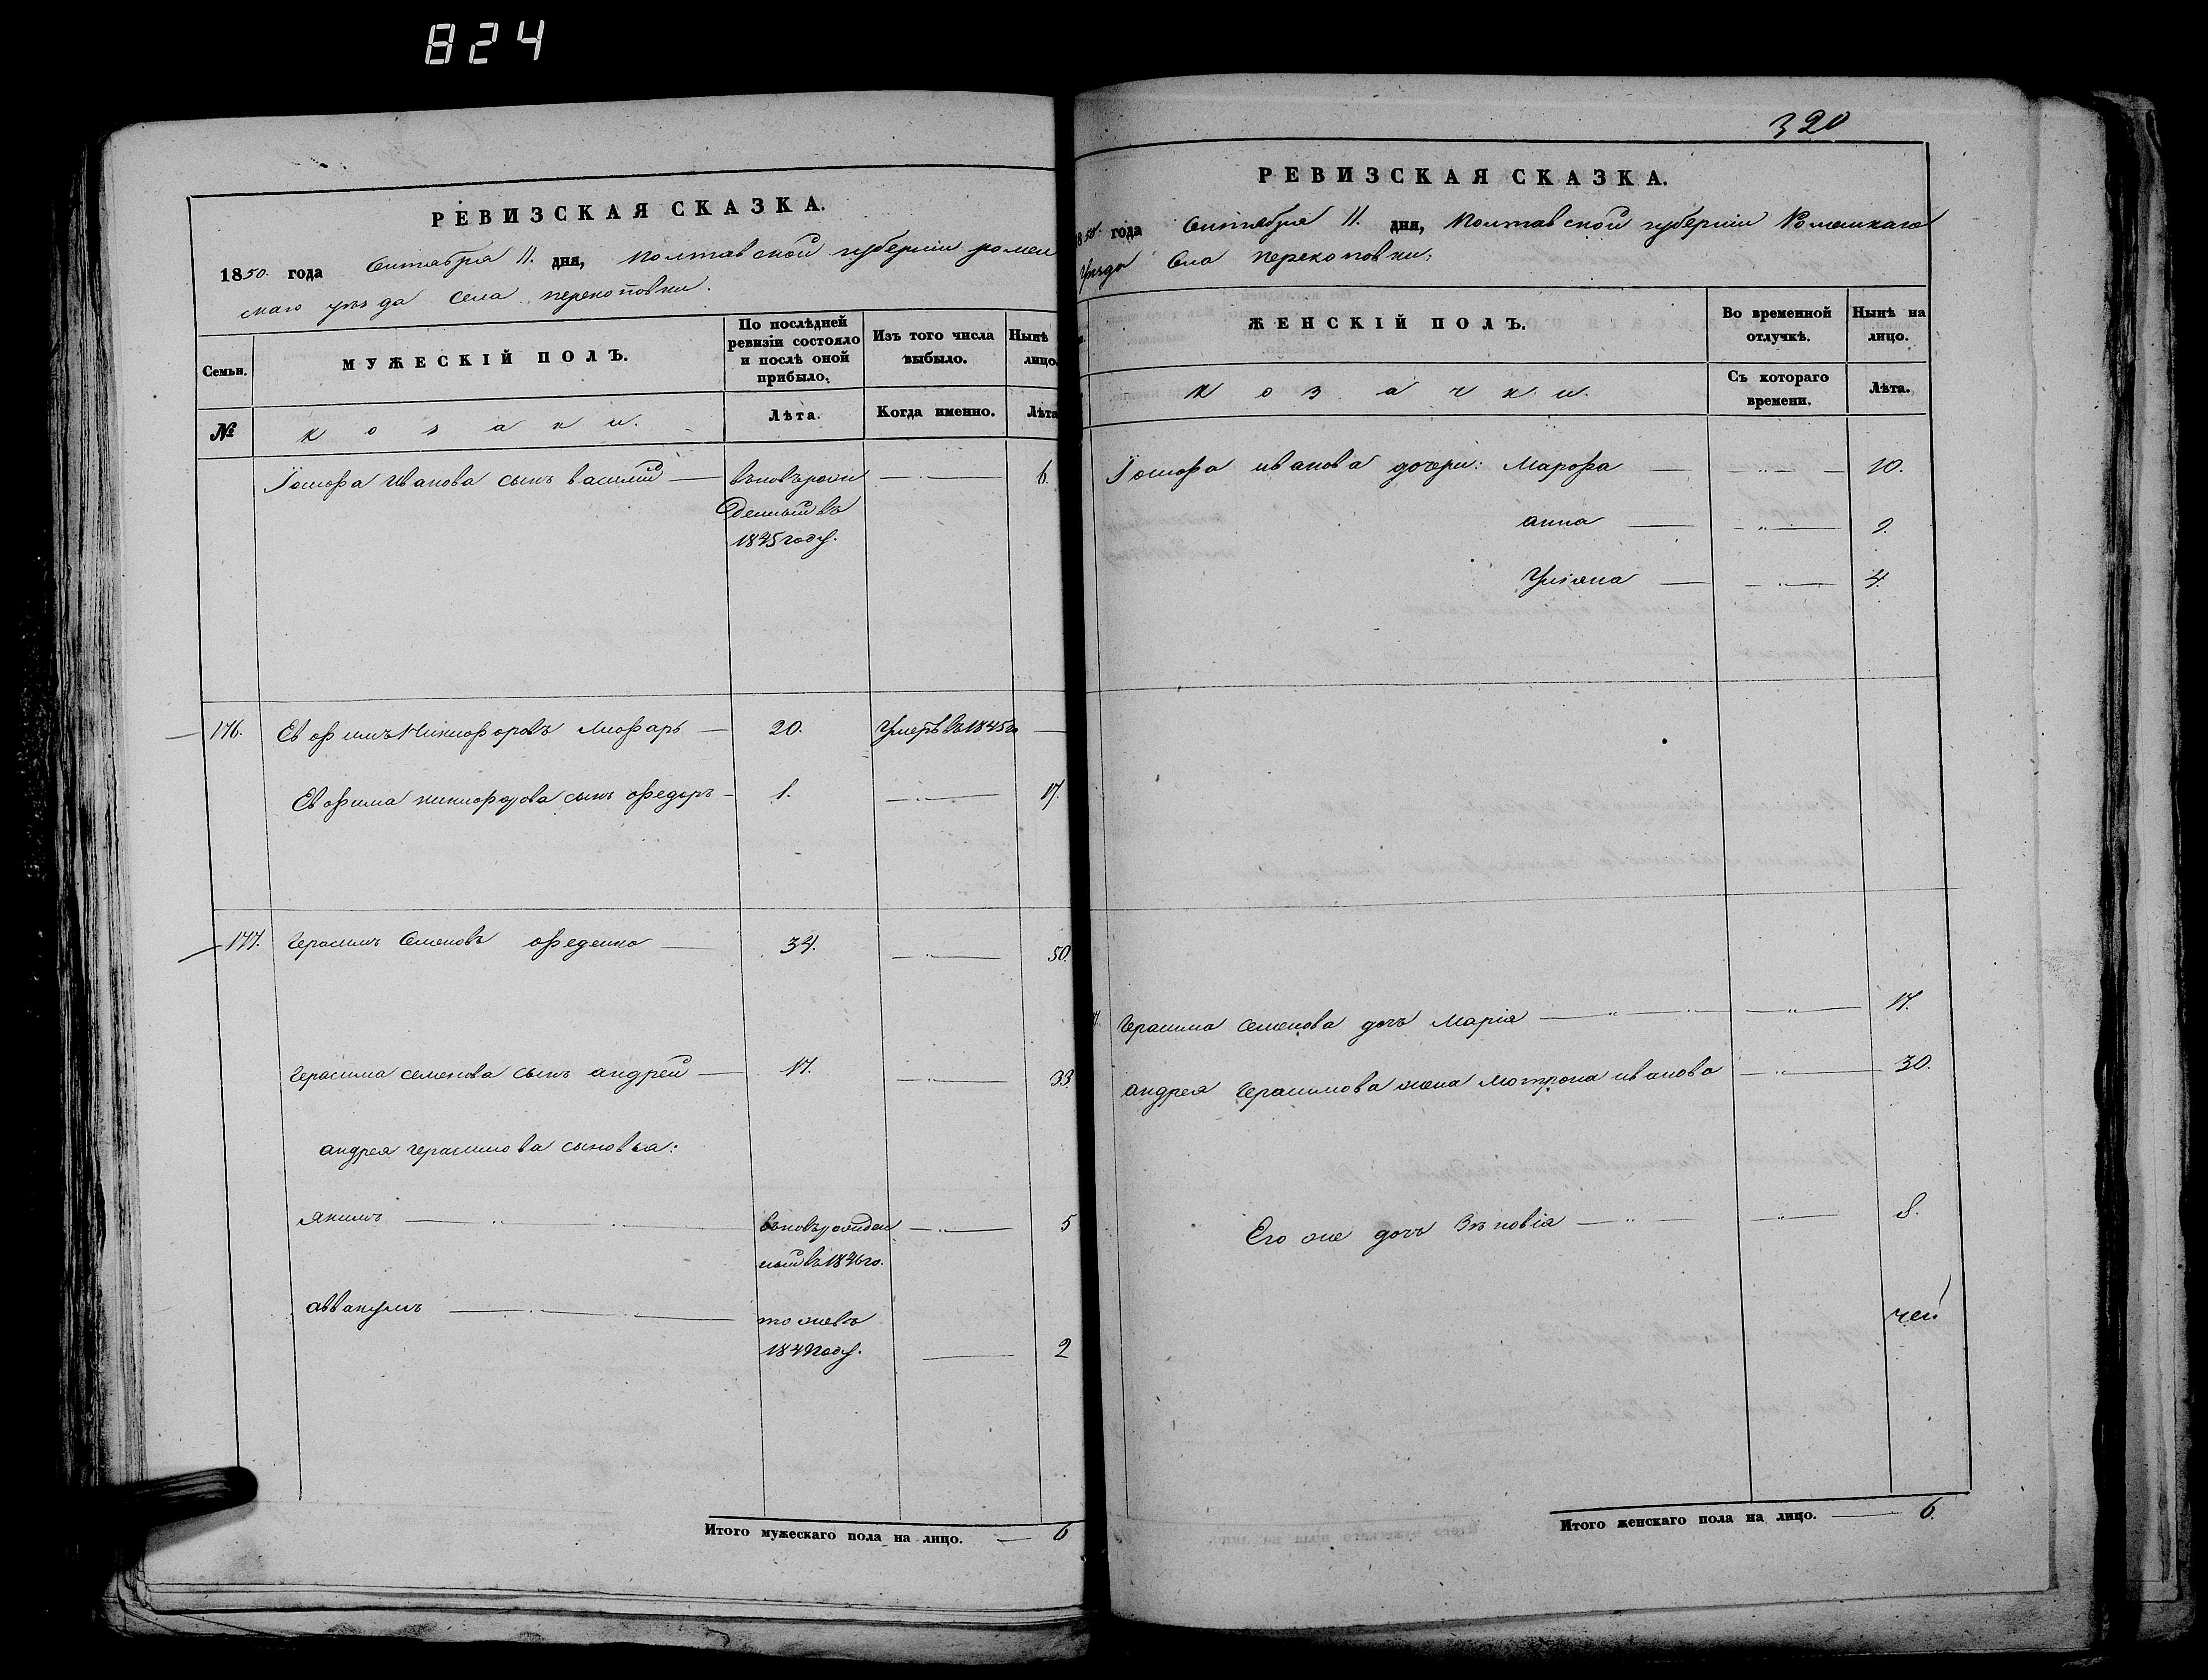 824
РЕВИЗСКАЯ СКАЗКА.
1850. года Сентября 11. дня, Полтавской губернiи ромен
скаго уѣзда села перекоповки.
Семьи.
МУЖЕСКІЙ ПОЛЪ.
По послѣдней
ревизіи состояло
и послѣ оной
прибыло.
Изъ того числа
выбыло.
Нынѣ
лицо.
№
козаки.
Лѣта.
Когда именно.
Лѣта
Іосифа Иванова сынъ василій
вновь рож
денный въ
1845 году.
6.
176. Евфимъ Никифоровъ Лифарь 20. Умеръ въ 1845 го
Евфима никифорова сынъ федоръ 1. 17.
177. Герасимъ Семеновъ феденко 34. 50.
Герасима семенова сынъ андрей 17. 33.
андрея герасимова сыновья:
якимъ вновь рожден 5
ный въ 1846 го.
аввакумъ тожевъ
1849 году. 2
Итого мужескаго пола на лицо. 6
320
РЕВИЗСКАЯ СКАЗКА.
1850. года Сентября 11. дня, Полтавской губернiи Роменскаго
Уѣзда Села перекоповки,
ЖЕНСКІЙ ПОЛЪ.
Во временной
отлучкѣ.
Нынѣ на
лицо.
козачки.
Съ котораго
времени.
Лѣта.
Іосифа иванова дочери: Марфа 10.
анна 9.
Уліяна 4.
Герасима семенова дочь Марія 17.
андрея Герасимова жена мотрона иванова 30.
Его же дочь Зѣновія 8.
Итого женскаго пола на лицо. 6.